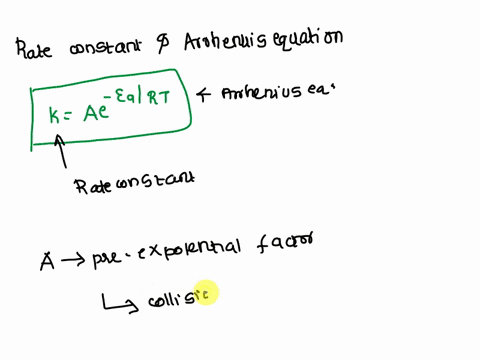 Rate constant & Arohenuis equation
K = Ae^-Ea/RT ← Arrhenius eqⁿ
Rate constant
A → pre-expolential factor
↳ collisi